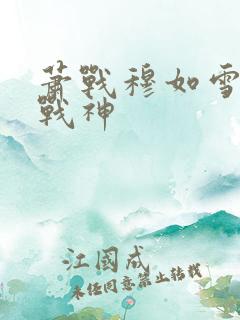 萧戰穆如雪
戰神
江國成
未经同意禁止转载